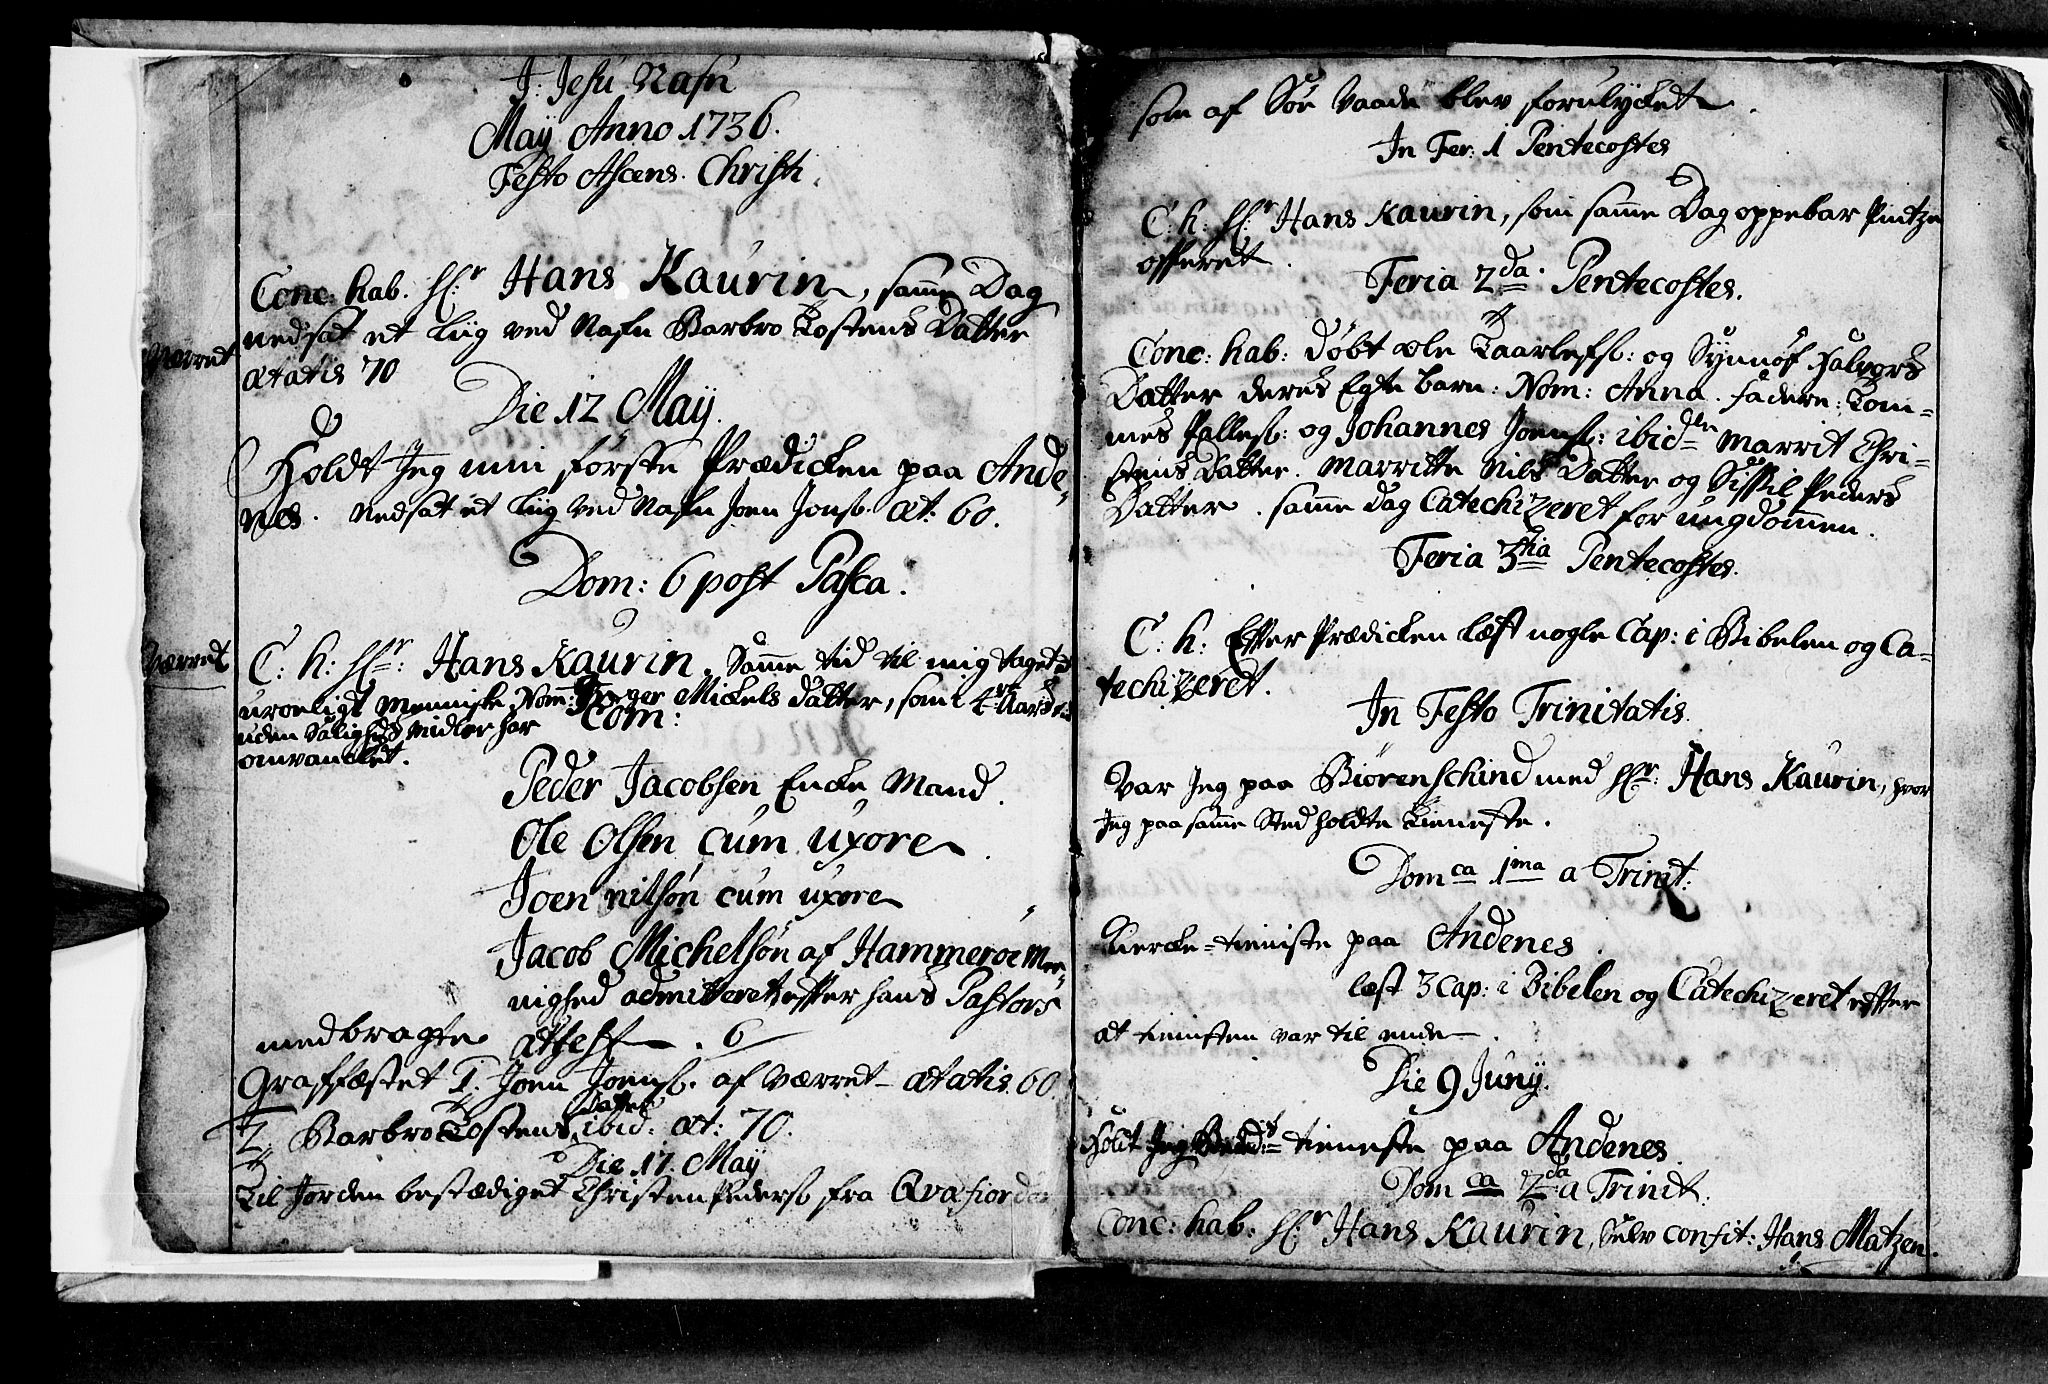 J: Jesu Nafn
Maÿ Anno 1736.
Festo Ascens. Christi.
Conc: hab. Hr: Hans Kaurin, samme Dag
nedsat et Liig ved Nafn Barbro Tostens Datter
Værret
ætatis 70
Die 12 Maÿ.
Holdt Jeg min første Prædicken paa Ande-
nes. Nedsat et Liig ved Nafn Joen Jons: æt: 60.
Dom: 6 post Pasca.
Værret
C: h: Hr: Hans Kaurin. Samme tid til mig taget et
uroeligt Menniske, Nom: Inger Mickels Datter, som i Aars tid
uden Saligheds Midler har
omvancket.
Com:
Peder Jacobsen Encke Mand.
Ole Olsen cum uxore
Joen Nilsøn cum uxore
Jacob Michelsøn af Hammerøe Me-
nighed admitteret efter hans Pastors
medbragte attest. 6
Graffæstet 1. Joen Joens: af Værret ætatis. 60.
2. Barbro Tostens Datter ibid: æt: 70.
Die 17. Maÿ
Til Jorden bestædiget Christen Peders: fra Qvæfiorden
som af Søe Vaade blev forulycket.
In Fer: 1 Pentecostes
C: h: Hr: Hans Kaurin, som samme Dag oppebar Pintze
offeret.
Feria 2da. Pentecostes.
Conc: hab: døbt Ole Taarlefs: og Synnøf Halvors
Datter deres Egte barn: Nom: Anna. Fadere: Tom-
mes Palles: og Johannes Joens: ibiden Marrit Chri-
stens Datter. Marritte Nils Datter og Sissil Peders
Datter. samme dag Catechizeret for ungdommen.
Feria 3tia Pentecostes.
C: h: Efter Prædicken læst nogle Cap: i Bibelen og Ca-
techizeret.
In Festo Trinitatis.
Var Jeg paa Biørenschind med Hr: Hans Kaurin, hvor
Jeg paa samme Sted holdte Tieneste.
Domca 1ma a Trinit:
Kiercke-tieniste paa Andenes.
læst 3 Cap: i Bibelen og Catechizeret efter
at tienisten var til ende.
Die 9 Junÿ.
Holt Jeg tieneste paa Andenes.
Domca 2da a Trinit.
Conc: hab: Hr: Hans Kaurin, Selv confit: Hans Matzen.